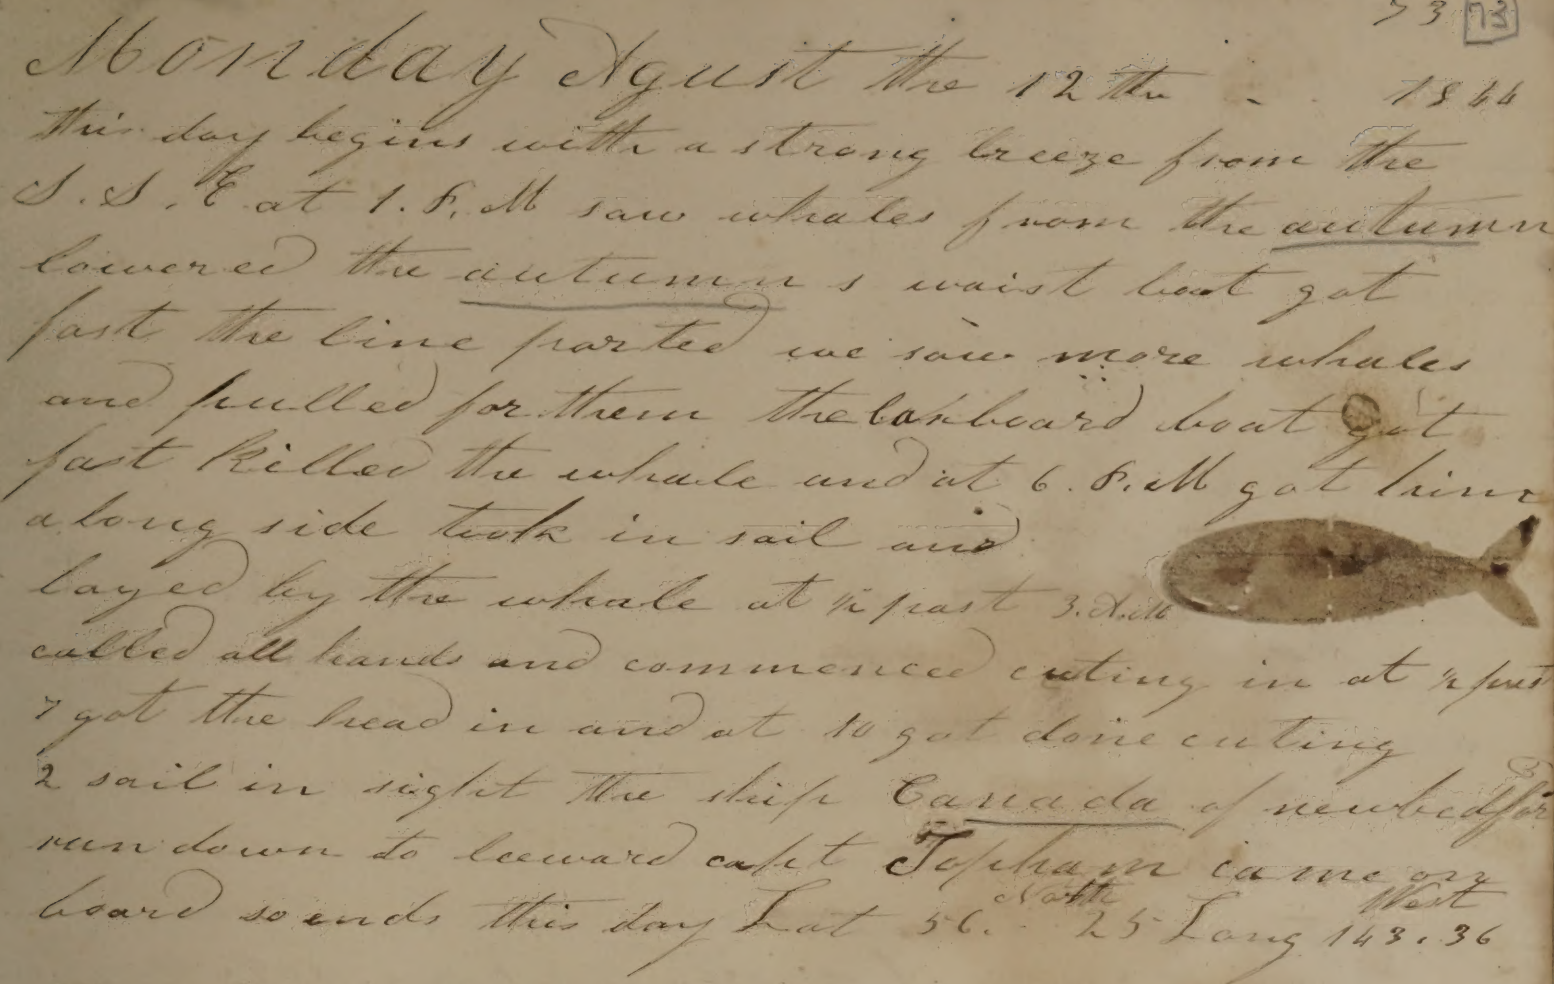 73 73
Monday Agust the 12 th - 1844
this day begins with a strong breeze from the
S. S. E at 1. P. M saw whales from the autumn
lowered the autumn s waist boat got
fast the line parted we saw more whales
and pulled for them the larboard boat got
fast killed the whale and at 6. P. M got him
along side took in sail and
layed by the whale at ½ past 3. A. M
called all hands and commenced cuting in at ½ past
7 got the head in and at 10 got done cuting
2 sail in sight the ship Canada of newbedford
run down to leeward capt Topham came on
North West
board so ends this day Lat 56. 25 Long 143. 36